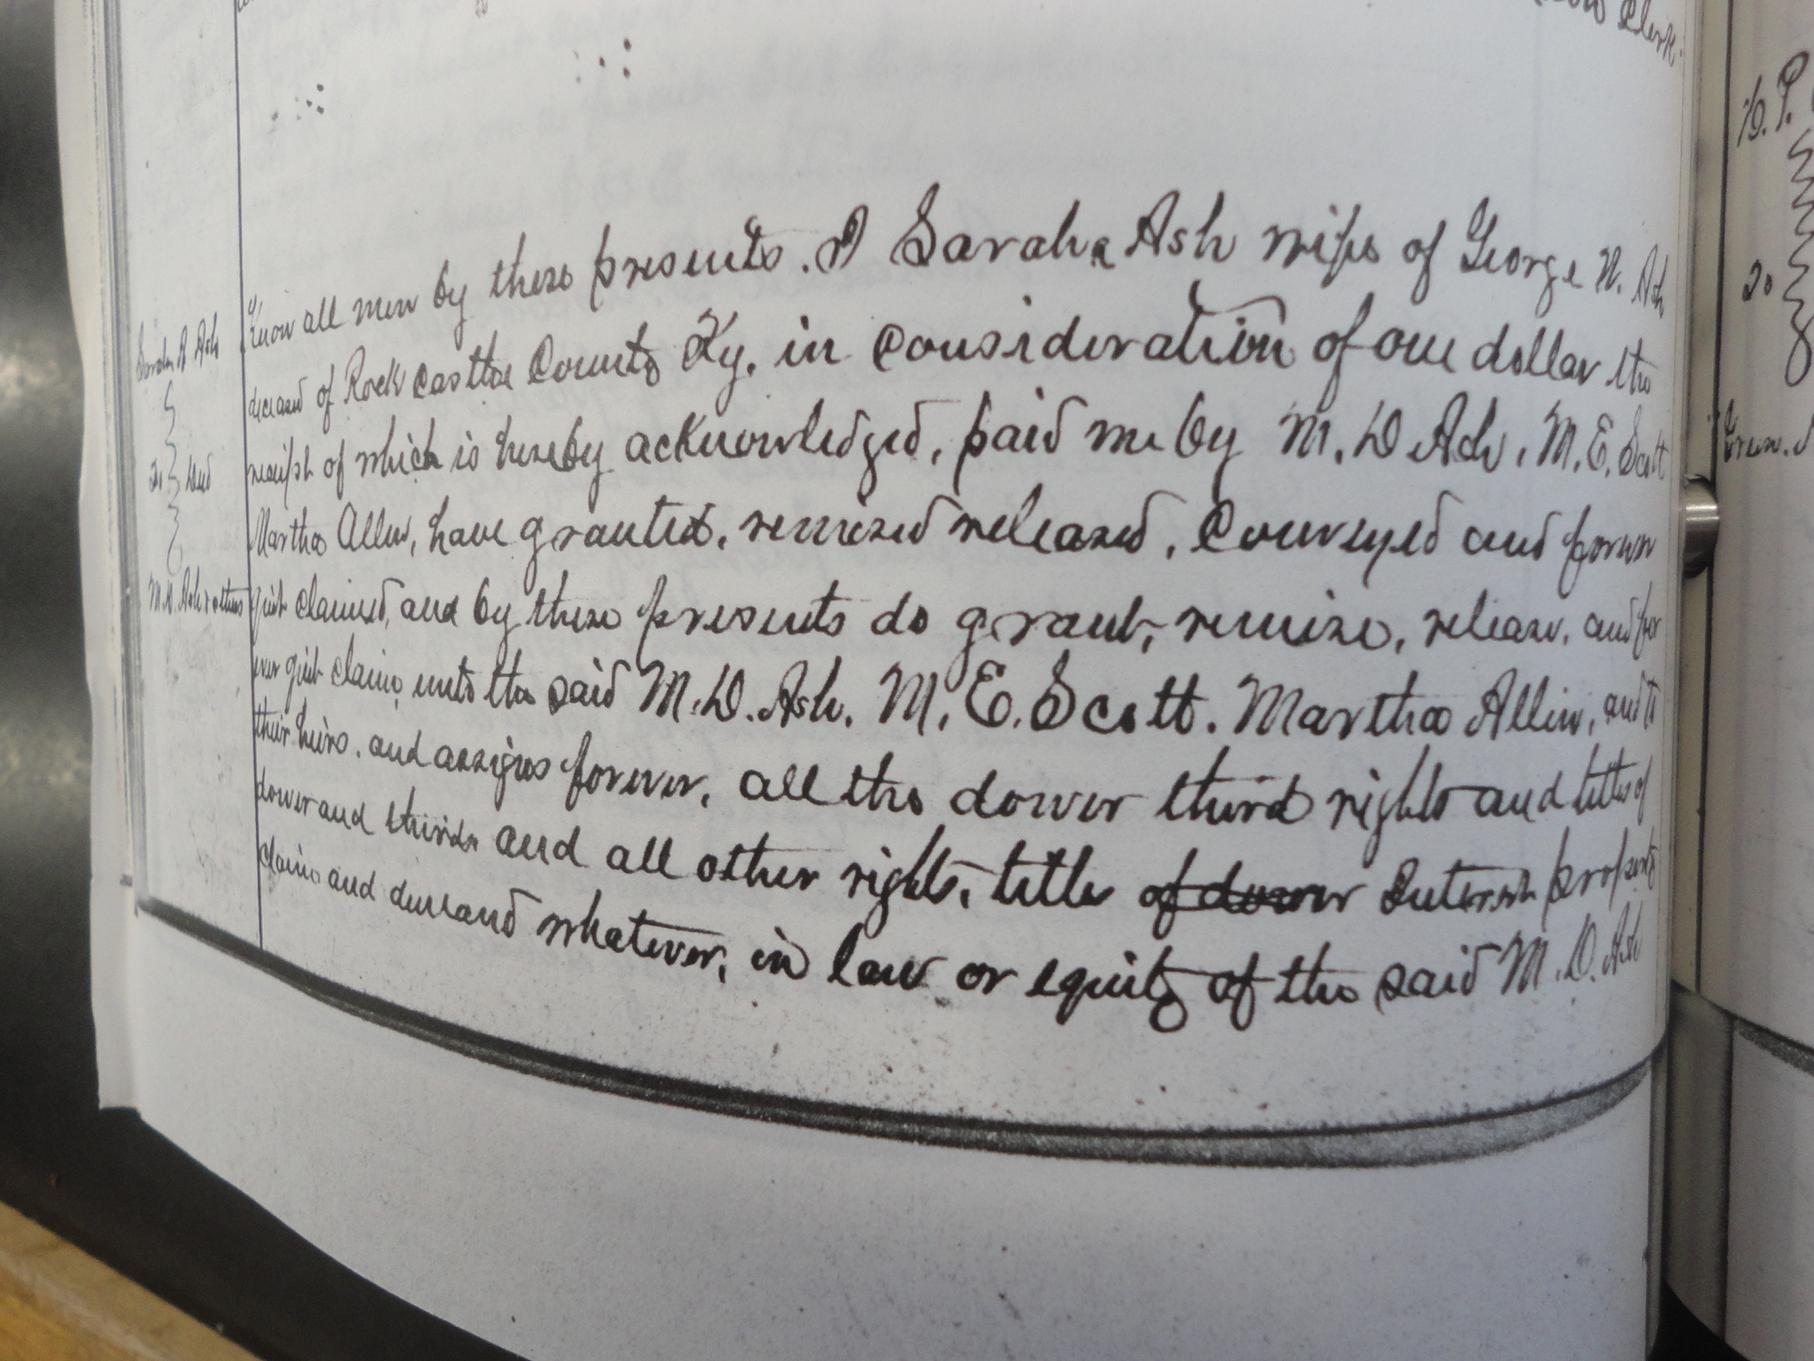 Clerk.
Know all men by these presents. I Sarah A Ash wife of George N. Ash
deceased of Rock castle County Ky. in consideration of one dollar the
receipt of which is hereby acknowledged, paid me by M. D Ash, M. E. Scott
Martha Allen, have granted, remised released, Conveyed and forever
quit claimed, and by these presents do grant, remise, release, and for
ever quit claim, unto the said M. D. Ash. M. E. Scott. Martha Allen, and to
their heirs. and assigns forever, all the dower third rights and titles of
dower and thirds and all other rights, title of dower Interest property
claim and demand whatever, in law or equity of the said M. D. Ash
Sarah A Ash
Deed
M. D. Ash & others
P.
20